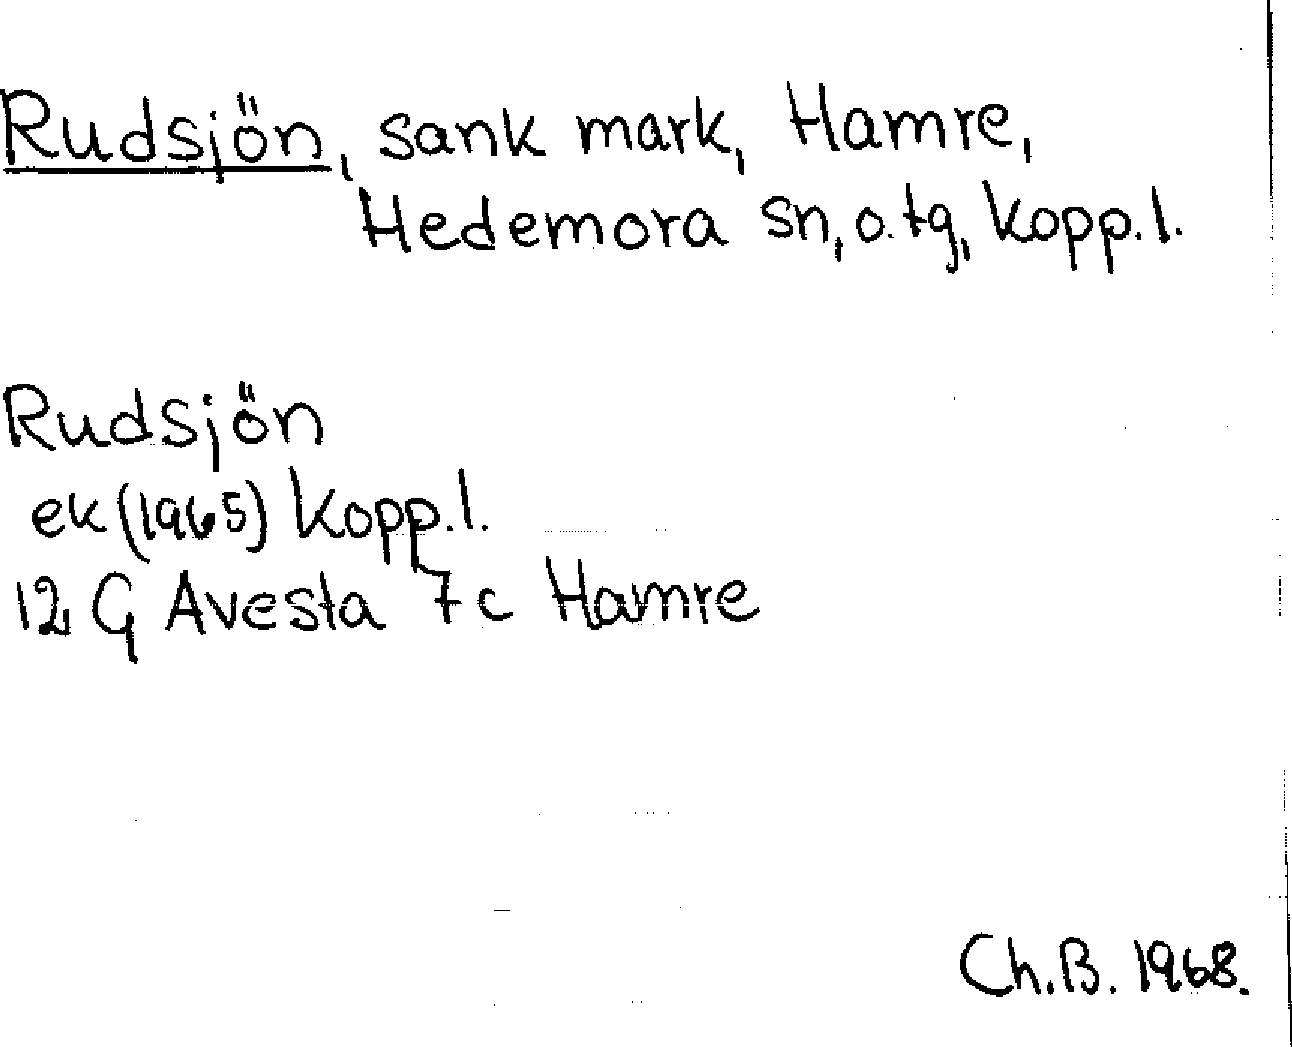 Rudsjön, sank mark, Hamre,
Hedemora sn, o. tg, Kopp. l.
Rudsjön
ek (1965) Kopp. l.
12 G Avesta 7c Hamre
Ch. B. 1968.